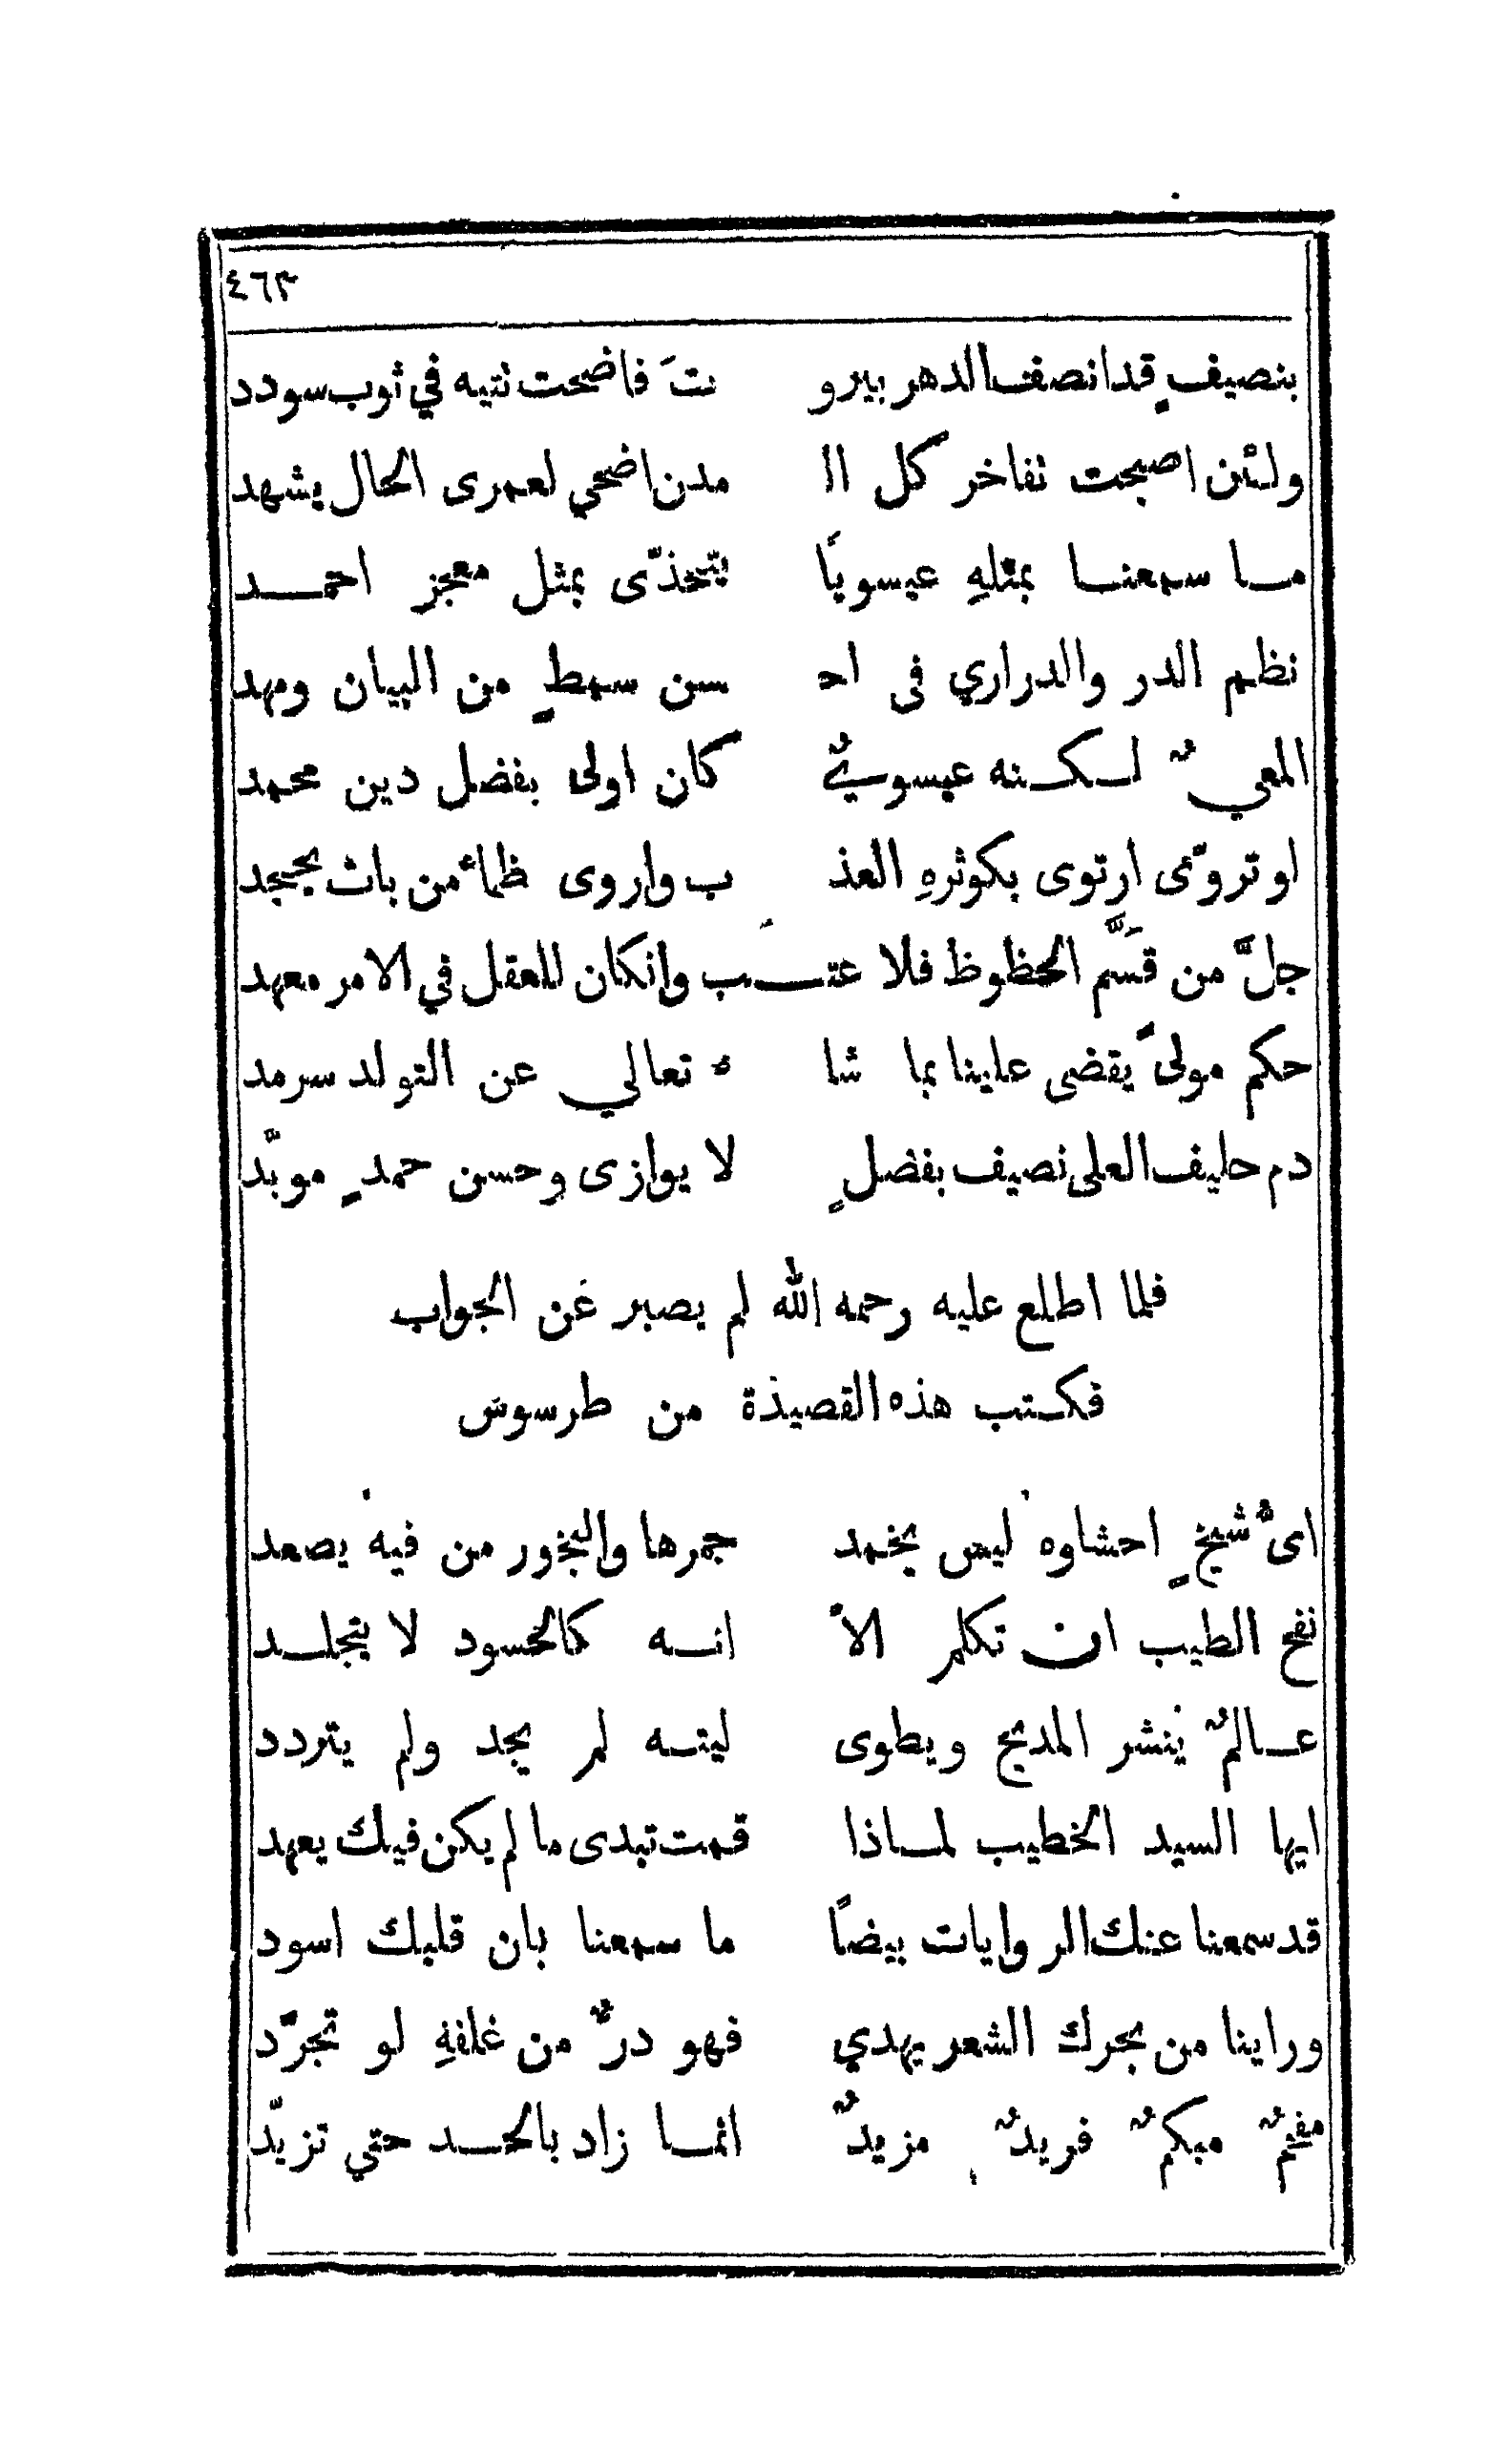 ٤٦٣
بنصيفٍ قد انصف الدهر بيرو تَ فاضحت نتيه في ثوب سودد
ولئن اصبحت تفاخر كل ال مدن اضحي لعمرى الحال يشهد
ما سمعنا بمثلهِ عيسويًا يتحذّى بمثل معجز احمد
نظم الدر والدراري فى اح سن سمطٍ من البيان ومهد
المعيٌ لكنه عيسويٌ كان اولى بفضل دين محمد
او تروّى ارتوى بكوثرهِ العذ ب واروى ظماء من بات يجحد
جلَّ من قسَّم الحظوظ فلا عتب وانكان للعقل في الامر معهد
حكم مولىً يقضى علينا بما شا ء تعالي عن التولد سرمد
دم حليف العلى نصيف بفضلٍ لا يوازى وحسن حمدٍ موبّد
فلما اطلع عليه رحمه الله لم يصبر عن الجواب
فكتب هذه القصيدة من طرسوس
اىُّ شيخٍ احشاوه ليس يخمد جمرها والبخور من فيه يصعد
نفح الطيب ان تكلم الاّ انه كالحسود لا يتجلد
عالمٌ ينشر المديح ويطوى ليته لم يجد ولم يتردد
ايها السيد الخطيب لماذا قمت تبدى ما لم يكن فيك يعهد
قد سمعنا عنك الروايات بيضًا ما سمعنا بان قلبك اسود
وراينا من بحرك الشعر يهدي فهو درٌّ من غلفهِ لو تجرّد
مفحمٌ مبكمٌ فريدٌ مزيدٌ انما زاد بالحسد حتي تزيّد